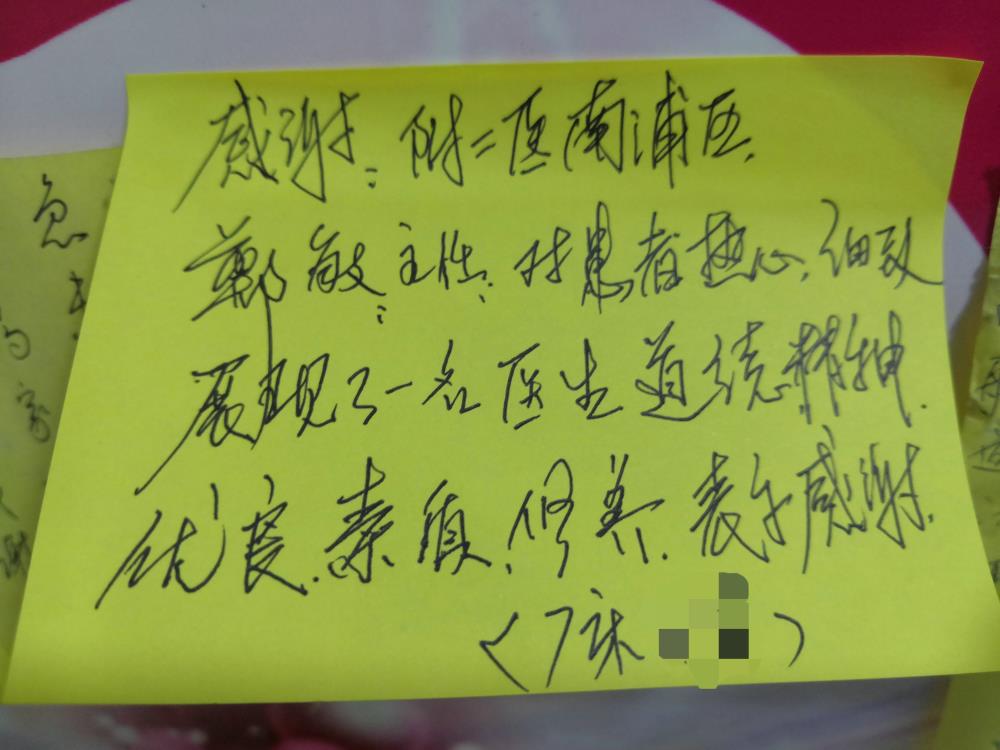 感谢：附二医南浦区.
郑敏：主任：对患者热心，细致
展现了一名医生道德精神.
优良.素质，修养.表示感谢.
（7床）
急